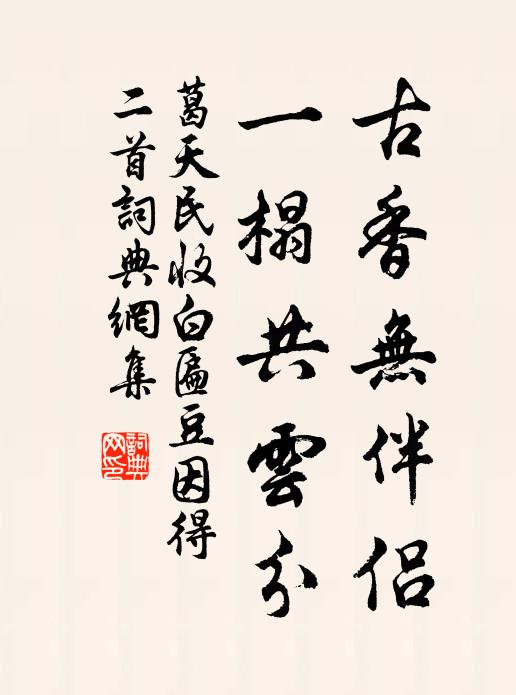 古香無伴侣
一榻共雲分
葛天民收白匾豆因得
二首詞典網集
詞典網印